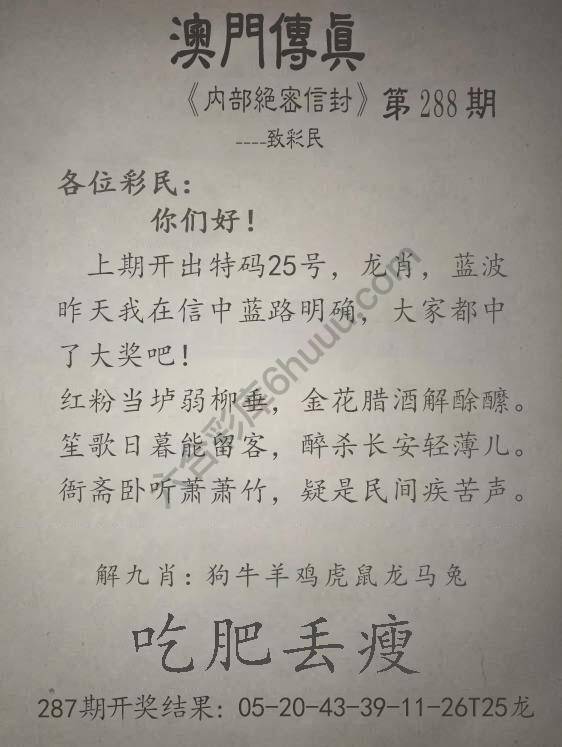 澳門傳真
《内部絕密信封》第288期
----致彩民
各位彩民：
你们好！
上期开出特码25号，龙肖，蓝波
昨天我在信中蓝路明确，大家都中
了大奖吧！
红粉当垆弱柳垂，金花腊酒解酴醾。
笙歌日暮能留客，醉杀长安轻薄儿。
衙斋卧听萧萧竹，疑是民间疾苦声。
六合彩库6huuu.com
解九肖：狗牛羊鸡虎鼠龙马兔
吃肥丢瘦
287期开奖结果：05-20-43-39-11-26T25龙